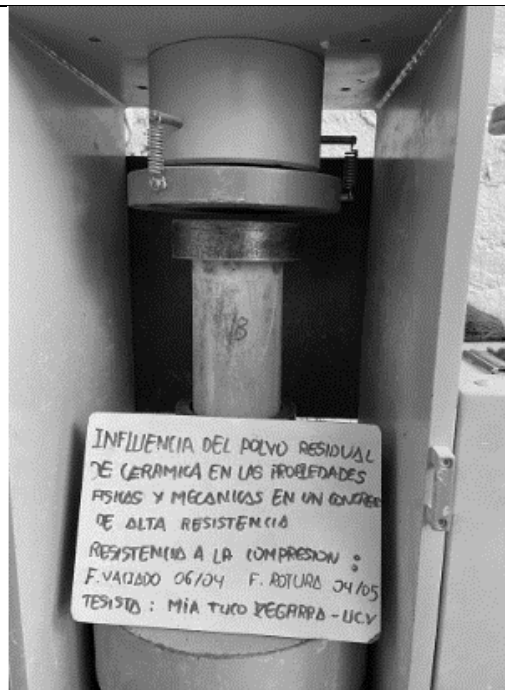 B
INFLUENCIA DEL POLVO RESIDUAL
DE CERAMICA EN LAS PROPIEDADES
FISICAS Y MECANICAS EN UN CONCRETO
DE ALTA RESISTENCIA
RESISTENCIA A LA COMPRESION :
F. VACIADO 06/04 F. ROTURA 04/05
TESISTA : MIA TUCO VEGARRA - UCV